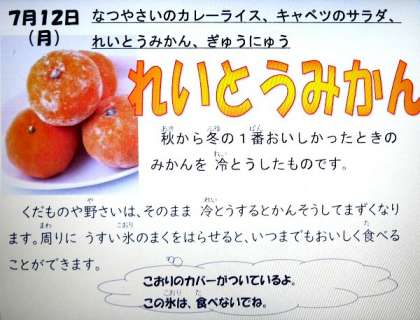 7月12日
(月)
なつやさいのカレーライス、キャベツのサラダ、
れいとうみかん、ぎゅうにゅう
れいとうみかん
秋から冬の1番おいしかったときの
みかんを 冷とうしたものです。
くだものや野さいは、そのまま 冷とうするとかんそうしてまずくなり
ます。周りに うすい氷のまくをはらせると、いつまでもおいしく食べる
ことができます。
こおりのカバーがついているよ。
この氷は、食べないでね。